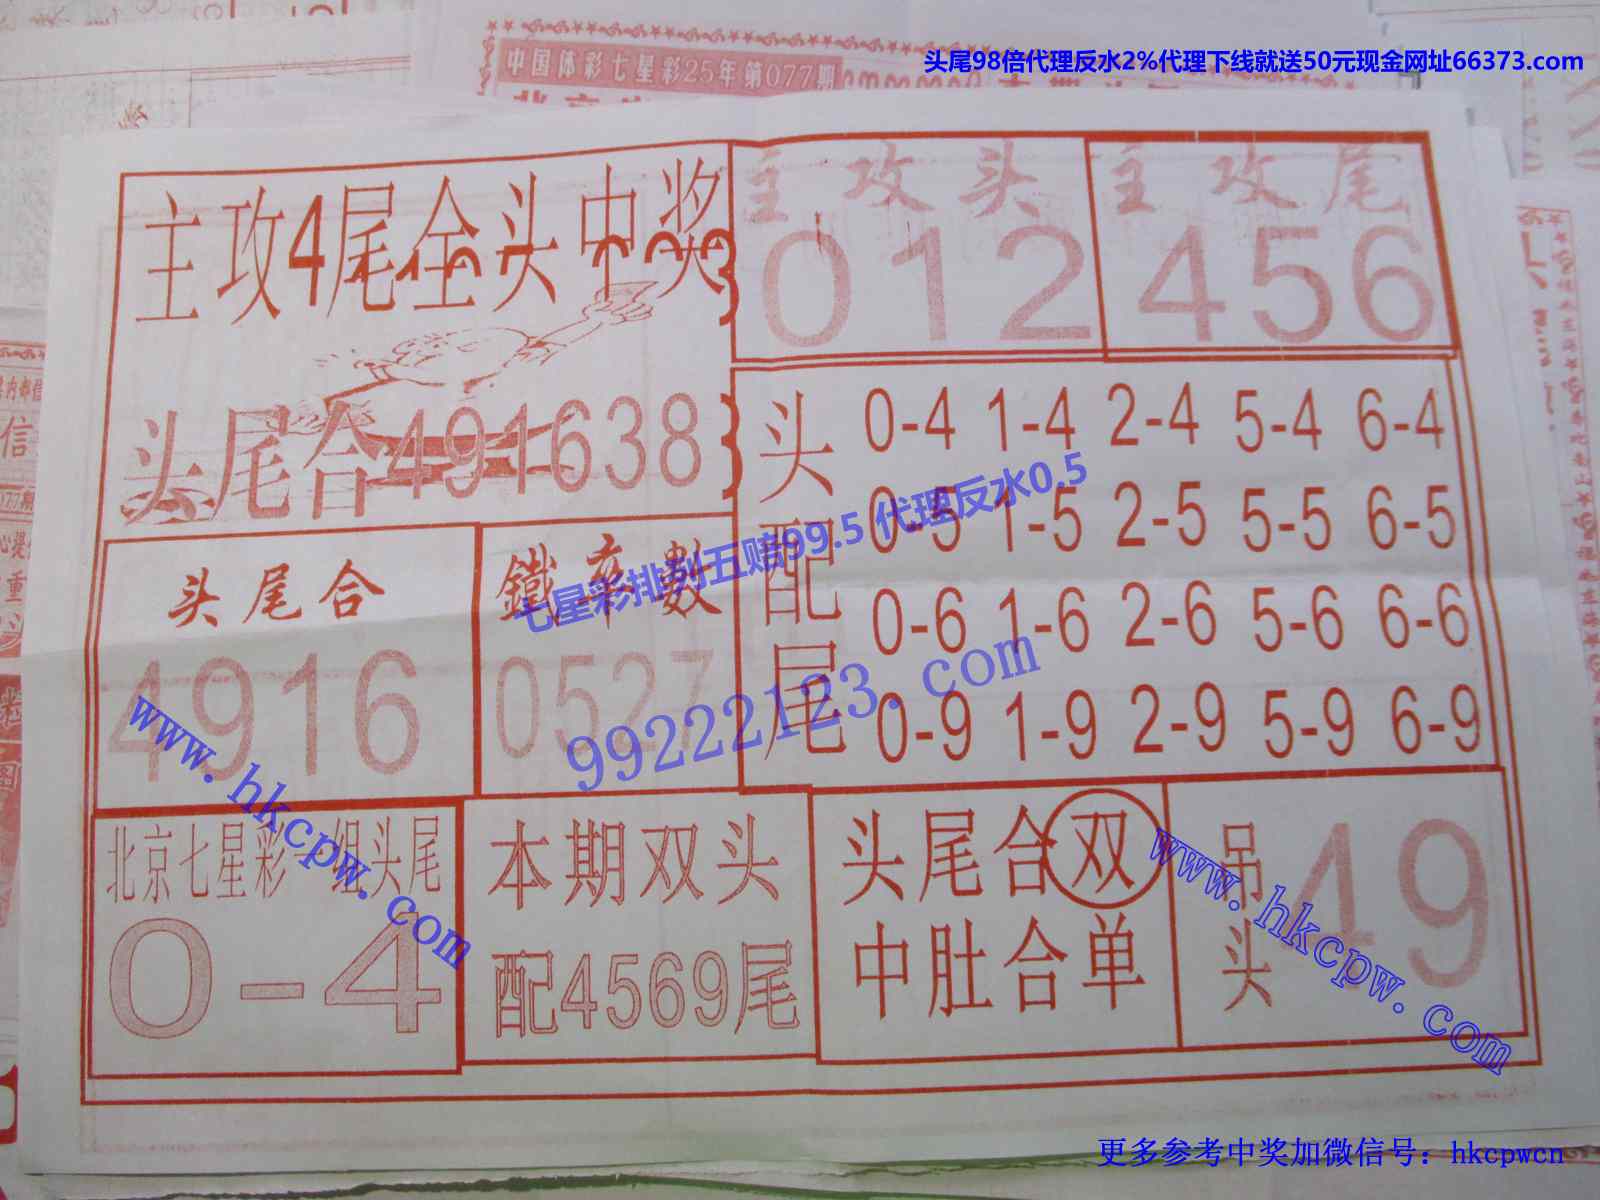 头尾98倍代理反水2%代理下线就送50元现金网址66373.com
中国体彩七星彩25年第077期
主攻4尾全头中奖
主攻头
012
主攻尾
456
头尾合491638
头尾合
4916
鐵率數
0527
头配尾
0-4 1-4 2-4 5-4 6-4
0-5 1-5 2-5 5-5 6-5
0-6 1-6 2-6 5-6 6-6
0-9 1-9 2-9 5-9 6-9
七星彩排列五赔99.5 代理反水0.5
99222123.com
www.hkcpw.com
北京七星彩一组头尾
0-4
本期双头
配4569尾
头尾合双
中肚合单
吊头
49
www.hkcpw.com
更多参考中奖加微信号：hkcpwcn
077期